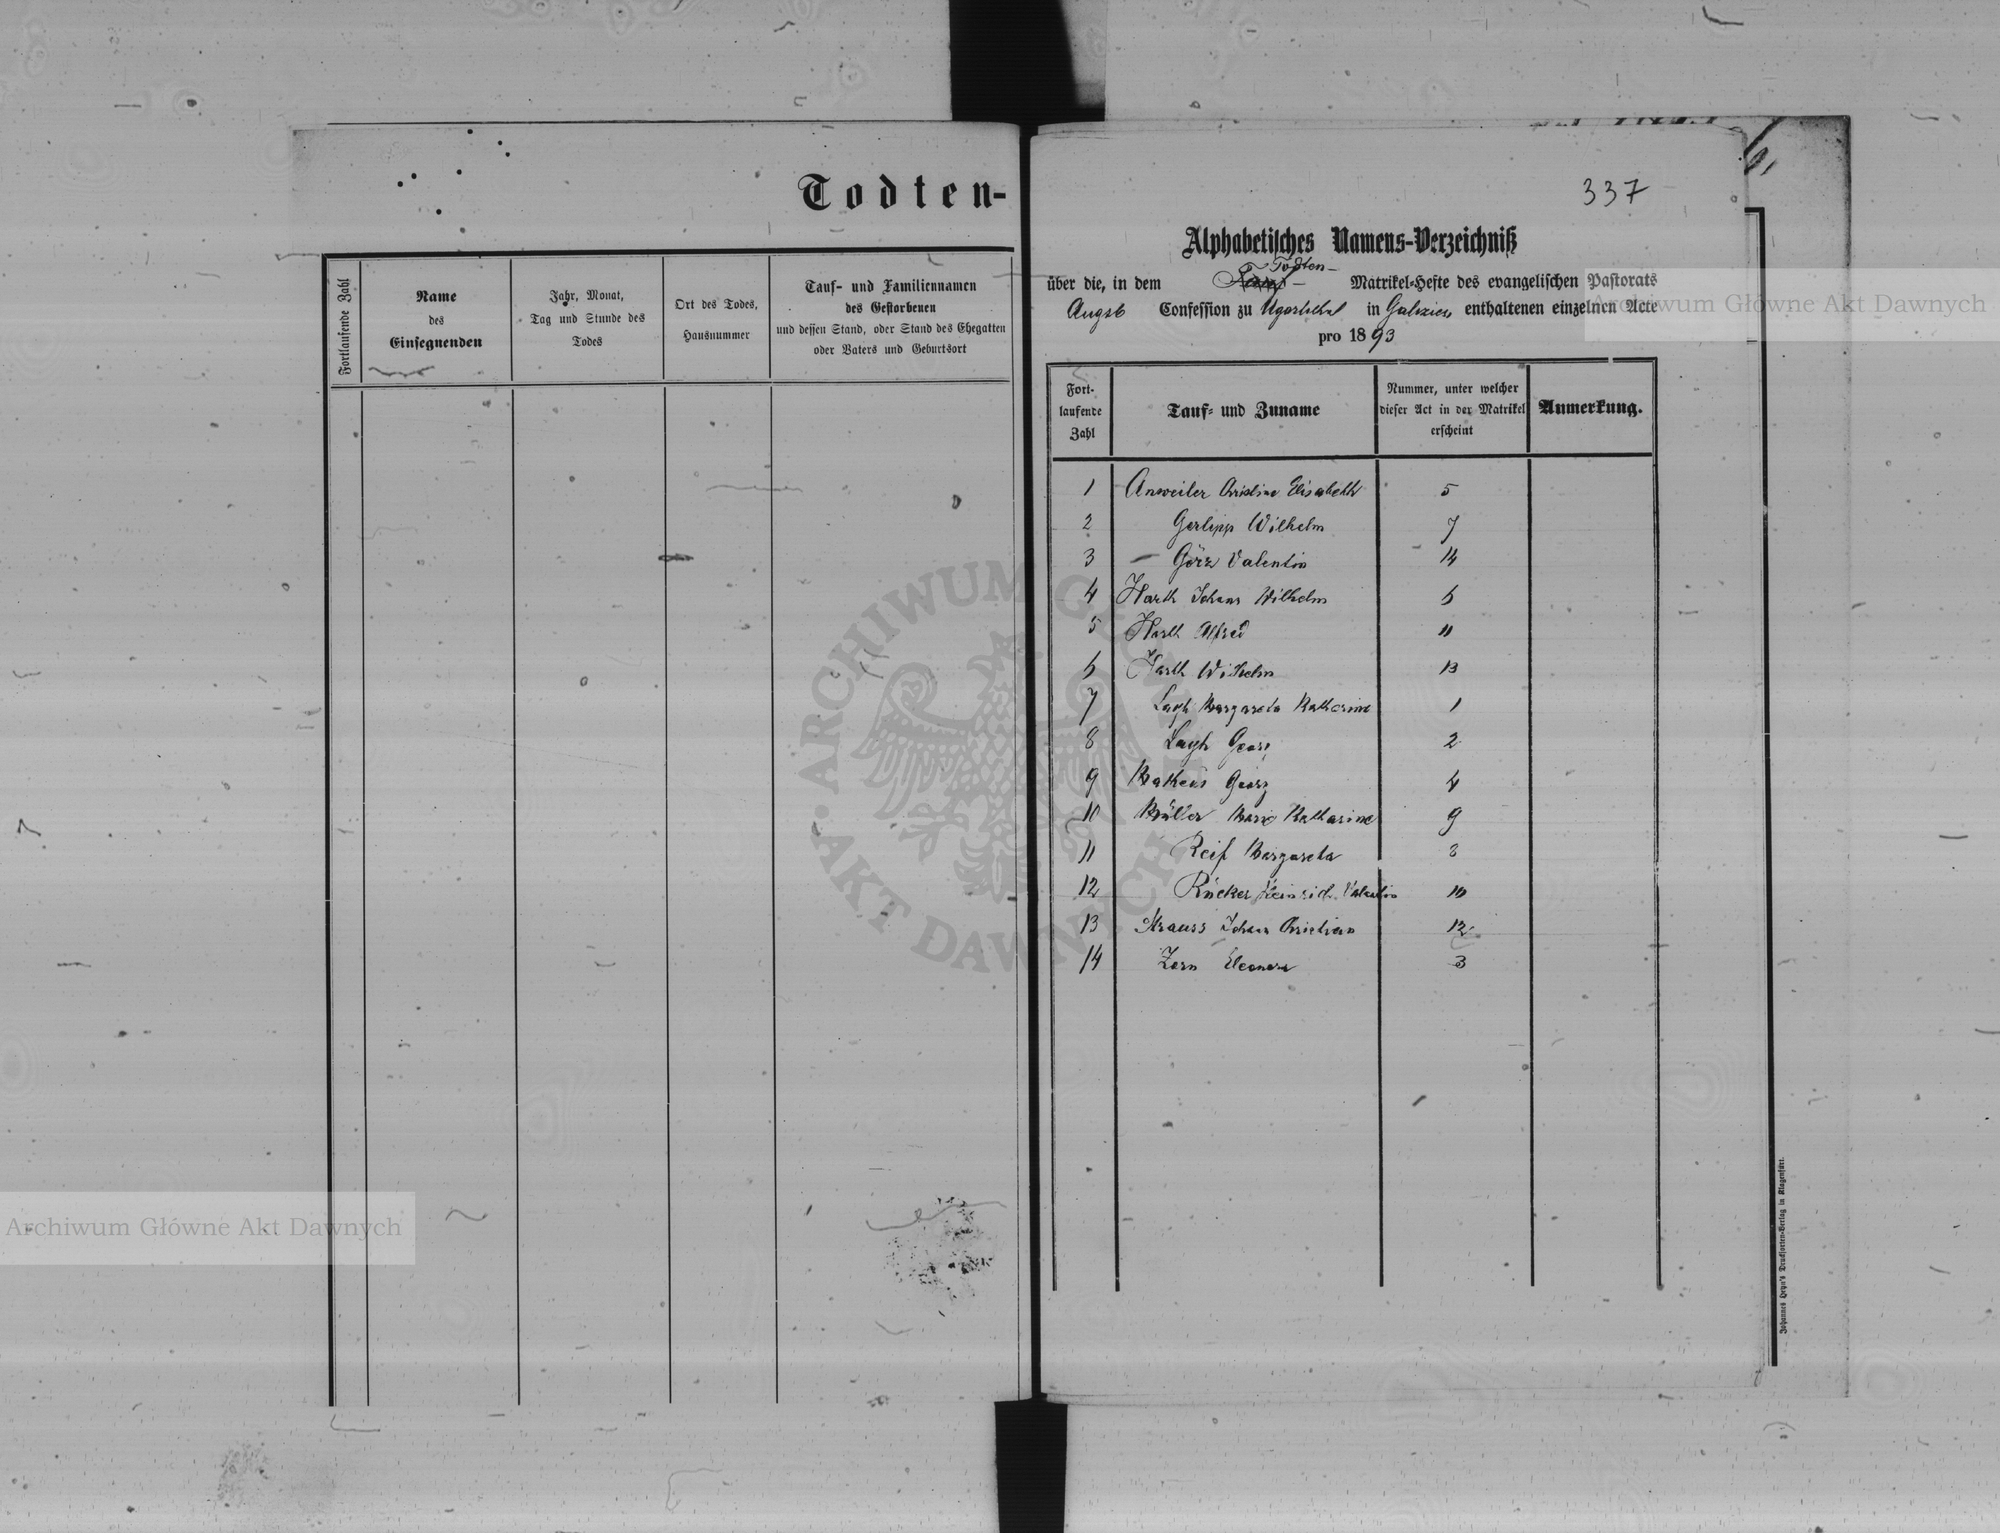 Todten-
Fortlaufende Zahl
Name
des
Einsegnenden
Jahr, Monat,
Tag und Stunde des
Todes
Ort des Todes,
Hausnummer
Tauf- und Familiennamen
des Gestorbenen
und dessen Stand, oder Stand des Ehegatten
oder Vaters und Geburtsort
337
Alphabetisches Namens-Verzeichniß
Todten-
über die, in dem Tauf- Matrikel-Hefte des evangelischen Pastorats
Augsb Confession zu Ugartsthal in Galizien enthaltenen einzelnen Acte
pro 1893
Fort-
laufende
Zahl
Tauf- und Zuname
Nummer, unter welcher
dieser Act in der Matrikel
erscheint
Anmerkung.
1 Anweiler Christine Elisabeth 5
2 Gerlipp Wilhelm 7
3 Görz Valentin 14
4 Harth Johann Wilhelm 6
5 Harth Alfred 11
6 Harth Wilhelm 13
7 Margareta Katharine 1
8 Georg 2
9 Georg 4
10 Müller Marie Katharine 9
11 Reif Margareta 8
12 Rücker Heinrich Valentin 10
13 Strauss Johann Christian 12
14 Zorn Eleonora 3
Johannes Heyn's Drucksorten-Verlag in Klagenfurt.
ARCHIWUM GŁÓWNE AKT DAWNYCH
Archiwum Główne Akt Dawnych
Archiwum Główne Akt Dawnych